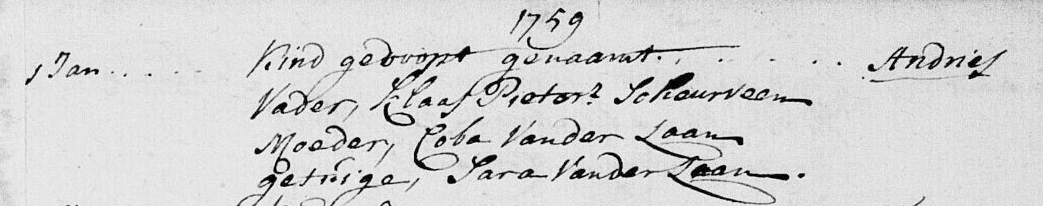 1759
1 Jan . . . . Kind gedoopt genaamt . . . . . . . Andries
Vader, Klaas Pieters Scheurveen
Moeder, Coba Vander Laan
getuige, Sara Vander Laan.